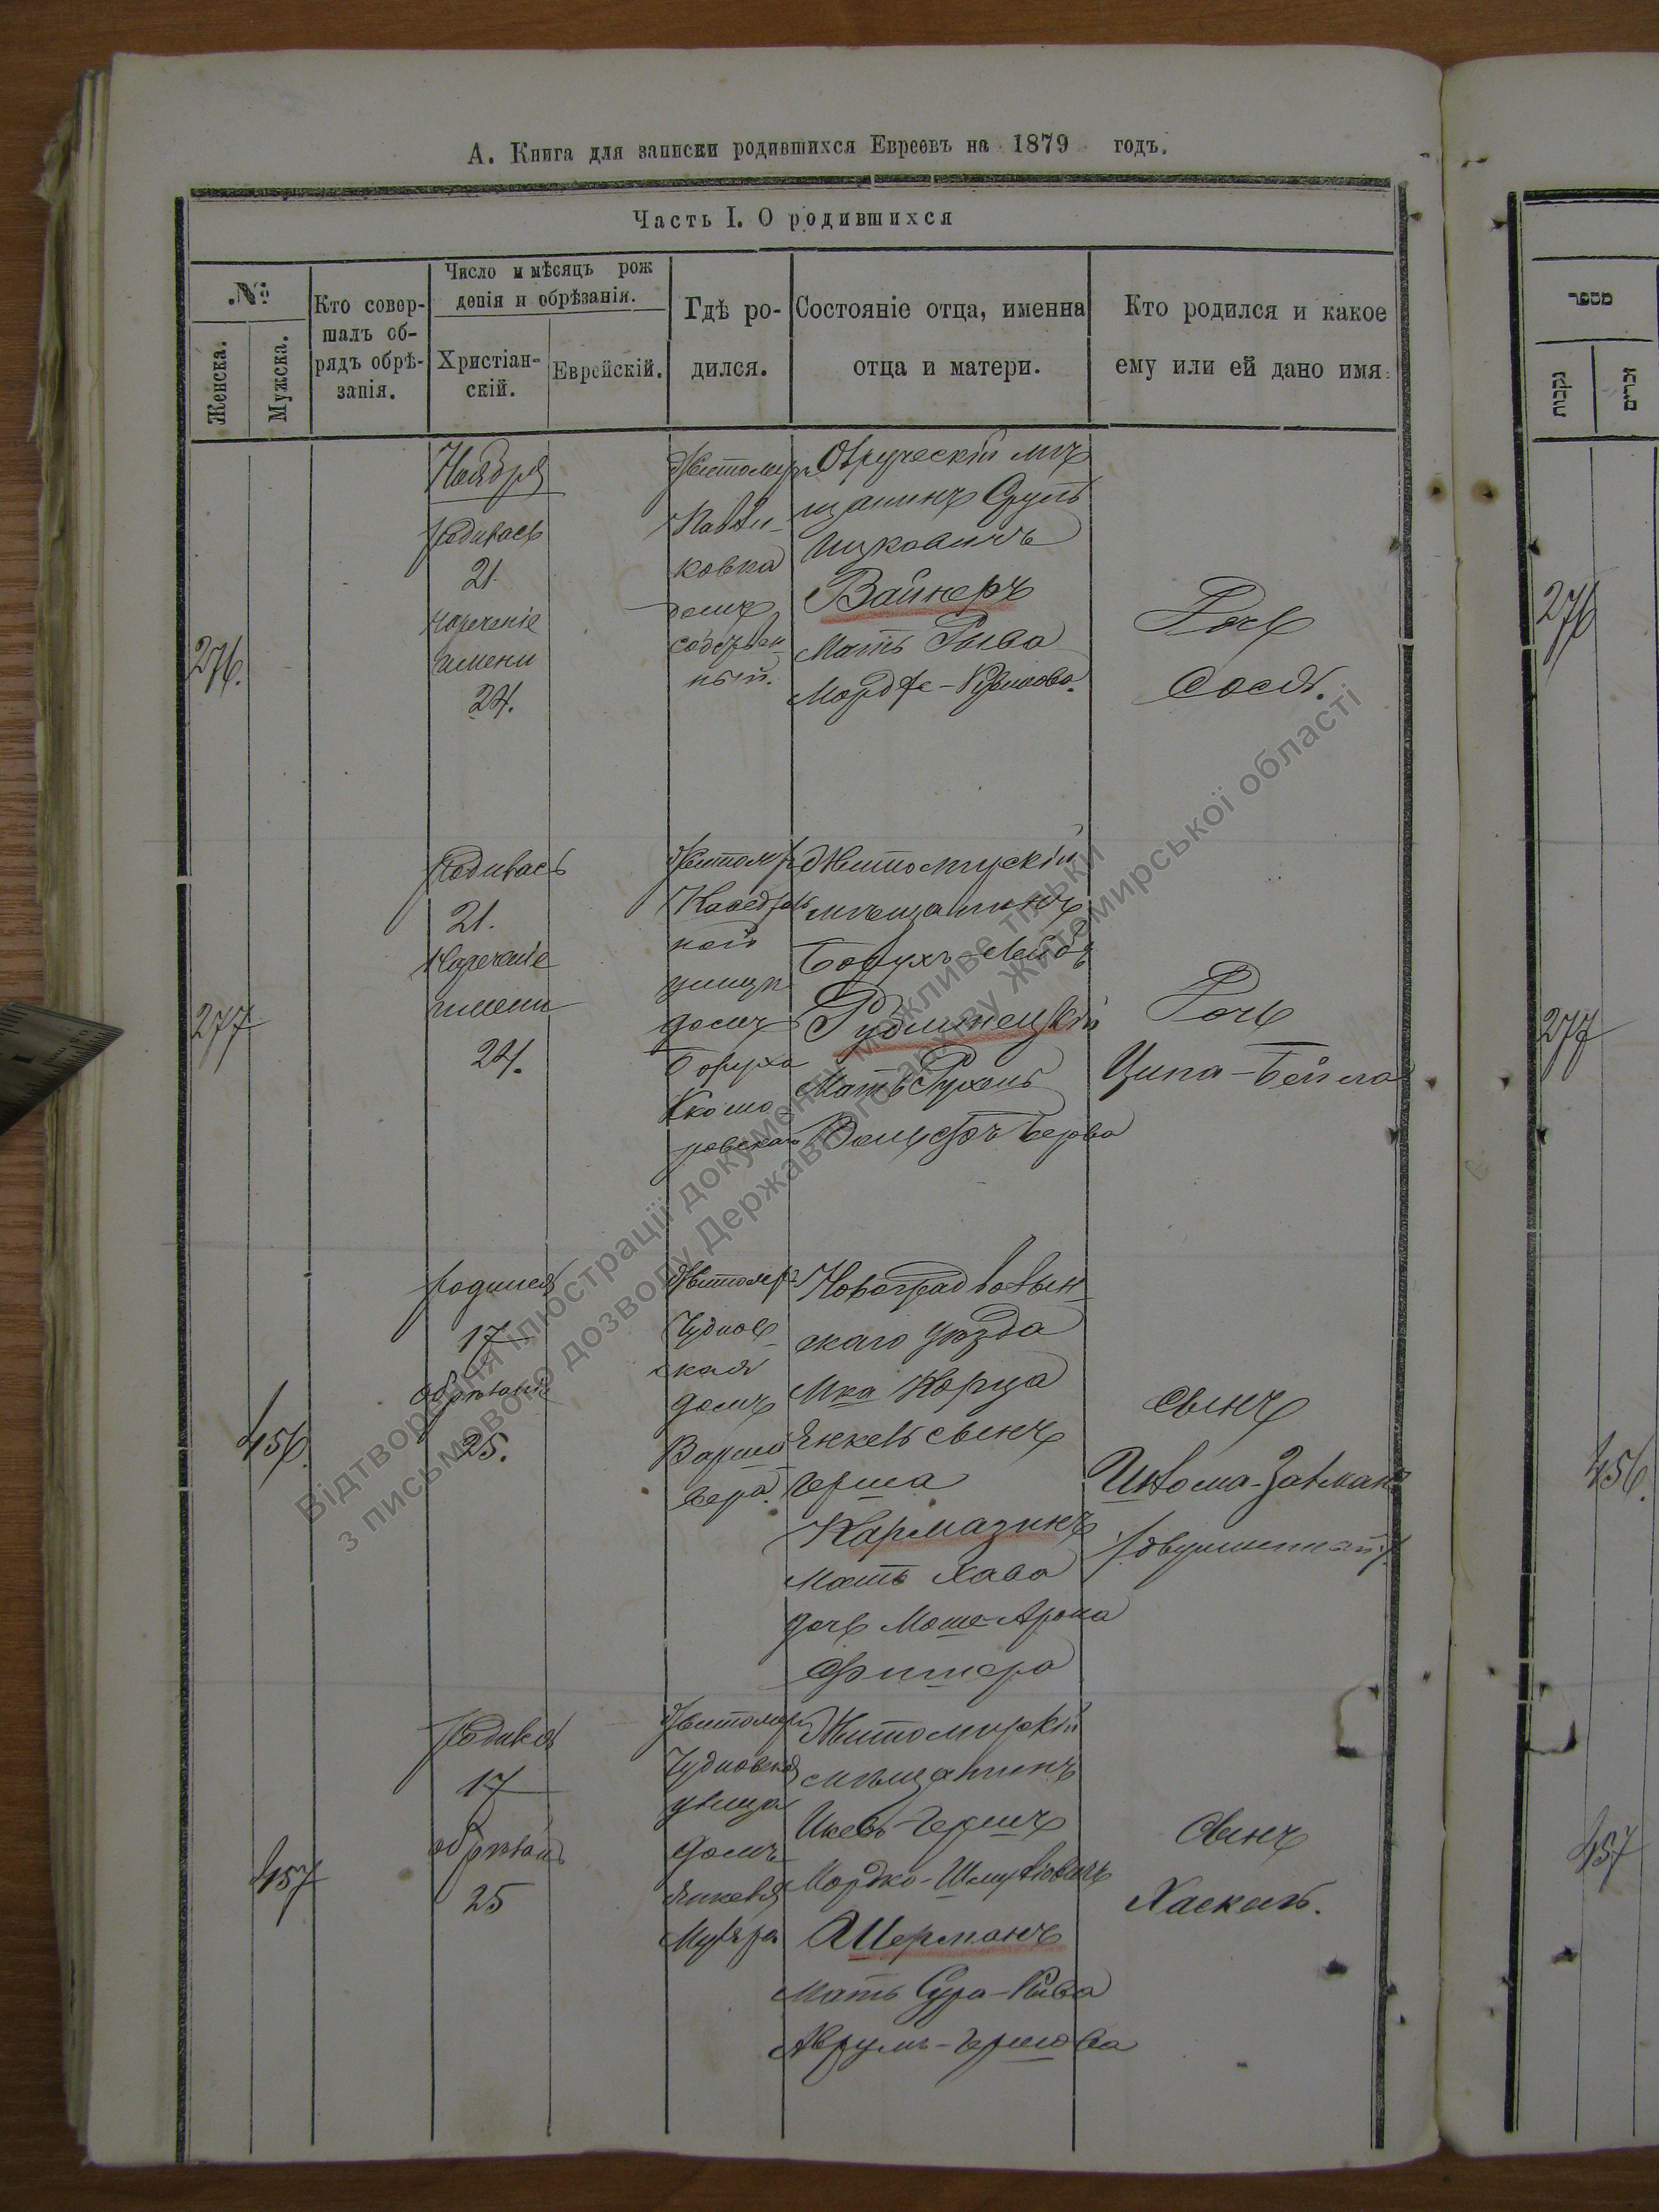 А. Книга для записки родившихся Евреевъ на 1879 годъ.
Часть I. О родившихся
№
Женска.
Мужска.
Кто совер-
шалъ об-
рядъ обрѣ-
занія.
Число и мѣсяцъ рож
денія и обрѣзанія.
Христіан-
скій.
Еврейскій.
Гдѣ ро-
дился.
Состояніе отца, именна
отца и матери.
Кто родился и какое
ему или ей дано имя.
276.
Ноября
Родилась
21.
нареченіе
имени
24.
Житомиръ
Павли-
ковка
домъ
собствен-
ный.
Овруческій мѣ
щанинъ Сруль
Ицковичъ
Вайнеръ
Мать Рыва
Дочь
Сося.
277
Родилась
21.
Нареченіе
имени
24.
Житомиръ
Каөедраль
ной
улицѣ
домъ
Боруха
Житомирскій
мѣщанинъ
Борухъ-Лейбъ
Мать Рухель
Дочь
Ципа-Бейла
456.
Родился
17
обрѣзаніе
25.
Житомиръ
Чуднов
ская
домъ
Новоградволын
скаго уѣзда
Мка Корца
Янкель сынъ
Герша
Кармазинъ
Мать Хава
дочь Моше-Арона
Фишера
Сынъ
/двуименный/
457
Родился
17
обрѣзанъ
25
Житомиръ
Чудновская
улица
домъ
Житомирскій
мѣщанинъ
Гершъ
Мордко-Шмулiовичъ
Шерманъ
Мать Сура-Рива
Аврумъ-Гершова
Сынъ
Хаскель.
מספר
נקבות
זכרים
276
277
456.
457
Відтворення ілюстрації документу можливе тільки
з письмового дозволу Державного архіву Житомирської області